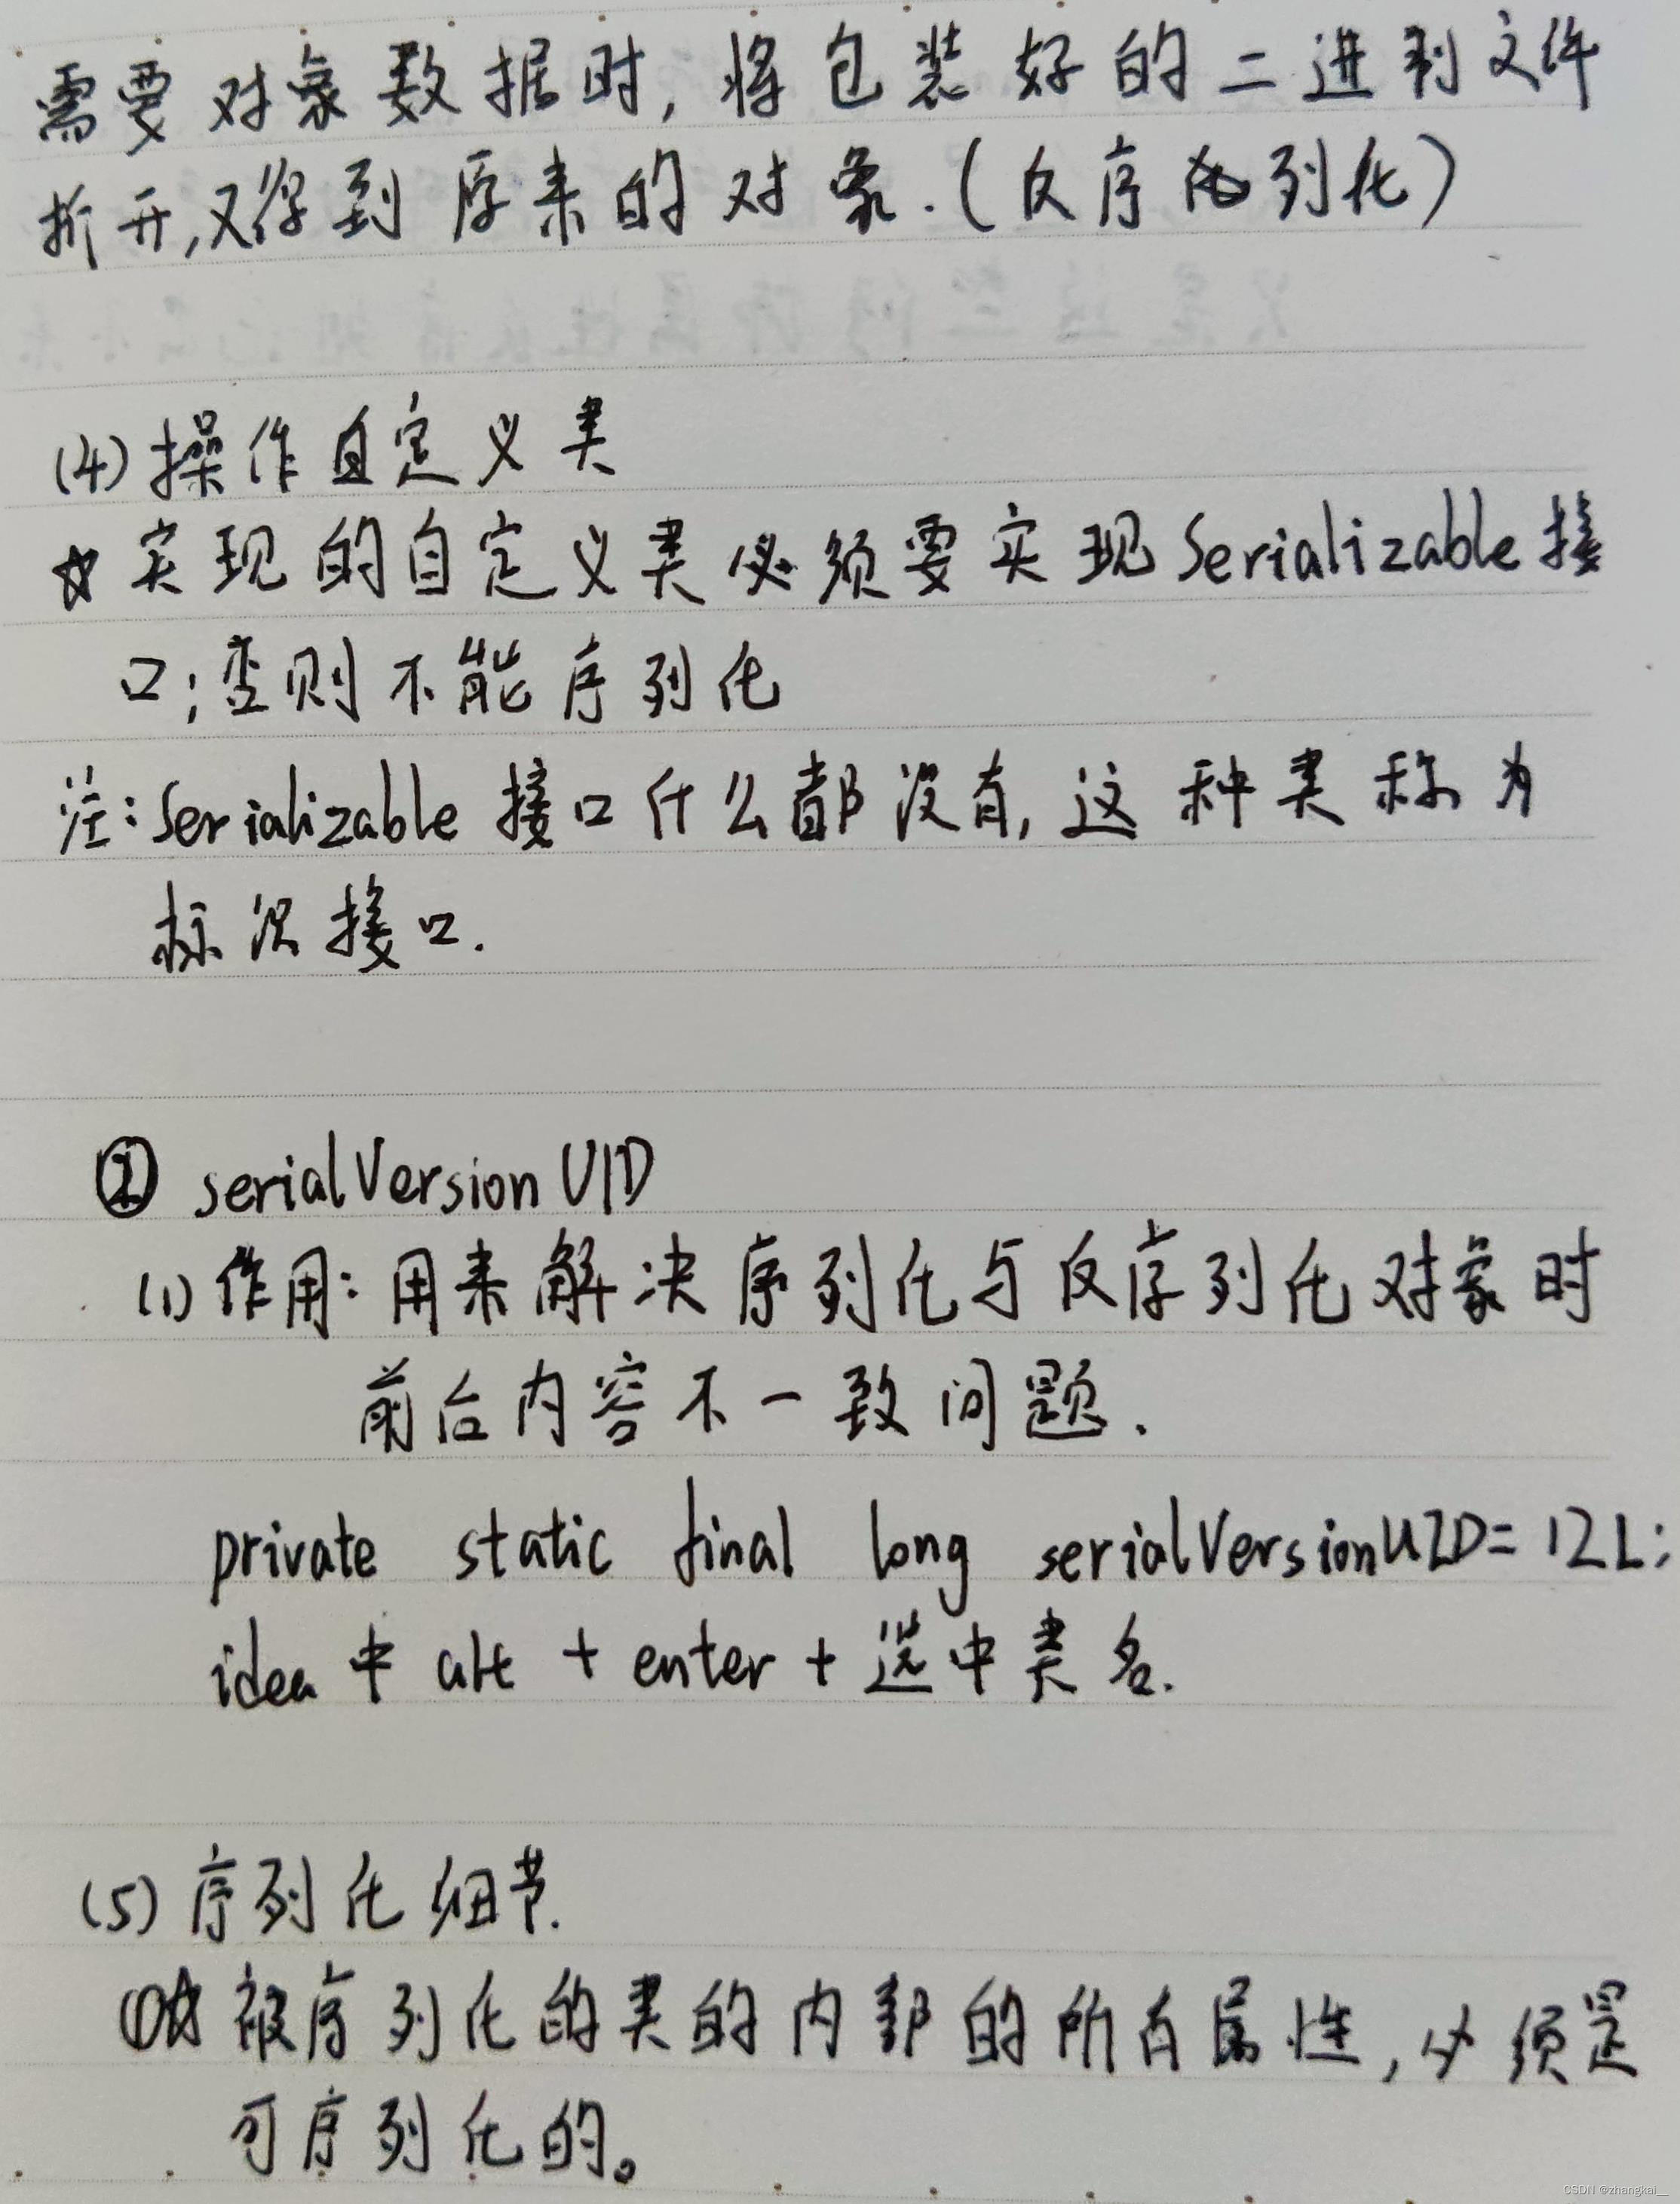 需要对象数据时,将包装好的二进制文件
拆开,又得到原来的对象.(反序列化)
(4)操作自定义类
☆实现的自定义类必须要实现Serializable接
口;否则不能序列化
注:Serializable接口什么都没有,这种类称为
标识接口.
② serialVersionUID
(1)作用:用来解决序列化与反序列化对象时
前后内容不一致问题.
private static final long serialVersionUID=12L;
idea中 alt + enter + 选中类名.
(5)序列化细节.
①☆被序列化的类的内部的所有属性,必须是
可序列化的。
CSDN @zhangkai__